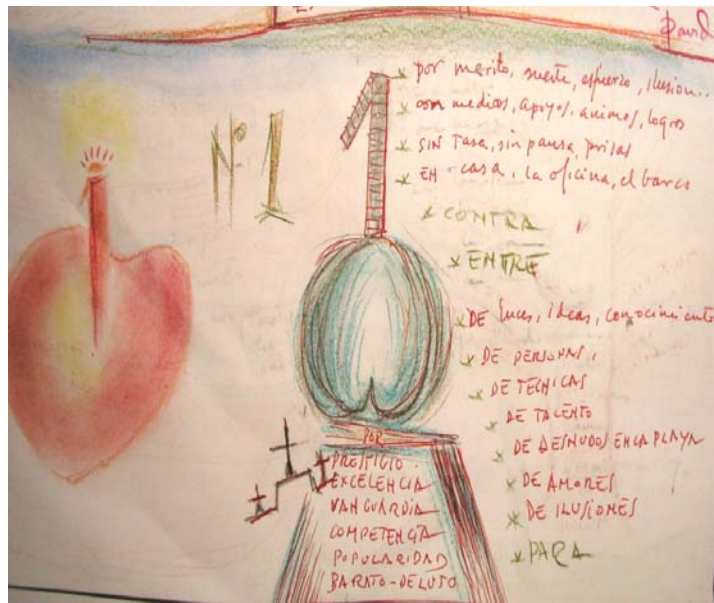 David
Nº 1
* por merito, suerte, esfuerzo, ilusion..
* con medios, apoyos, animos, logros
* SIN Tasa, sin pausa, prisas
* EN casa, la oficina, el barco
* CONTRA
* ENTRE
* DE luces, ideas, conocimiento
* DE PERSONAS,
* DE TECNICAS
* DE TALENTO
* DE DESNUDOS EN LA PLAYA
* DE AMORES
* DE ILUSIONES
* PARA
POR
PRESTIGIO
EXCELENCIA
VANGUARDIA
COMPETENCIA
POPULARIDAD
BARATO-DE LUJO